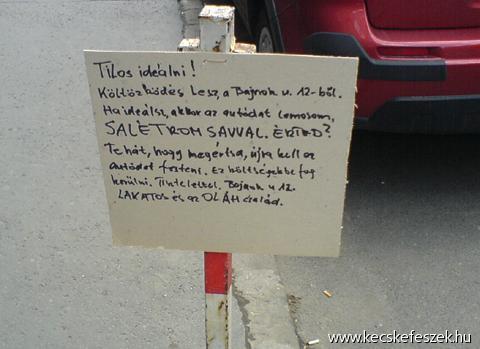 Tilos ideálni!
Költözködés Lesz, a Bajnok u. 12-ből.
Ha ideálsz, akkor az autódat lemosom,
SALÉTROM SAVVAL. ÉRTED?
Tehát, hogy megértsd, újra kell az
autódat festeni. Ez költségekbe fog
kerülni. Tisztelettel. Bajnok u 12.
LAKATOS és az OLÁH család.
www.kecskefeszek.hu